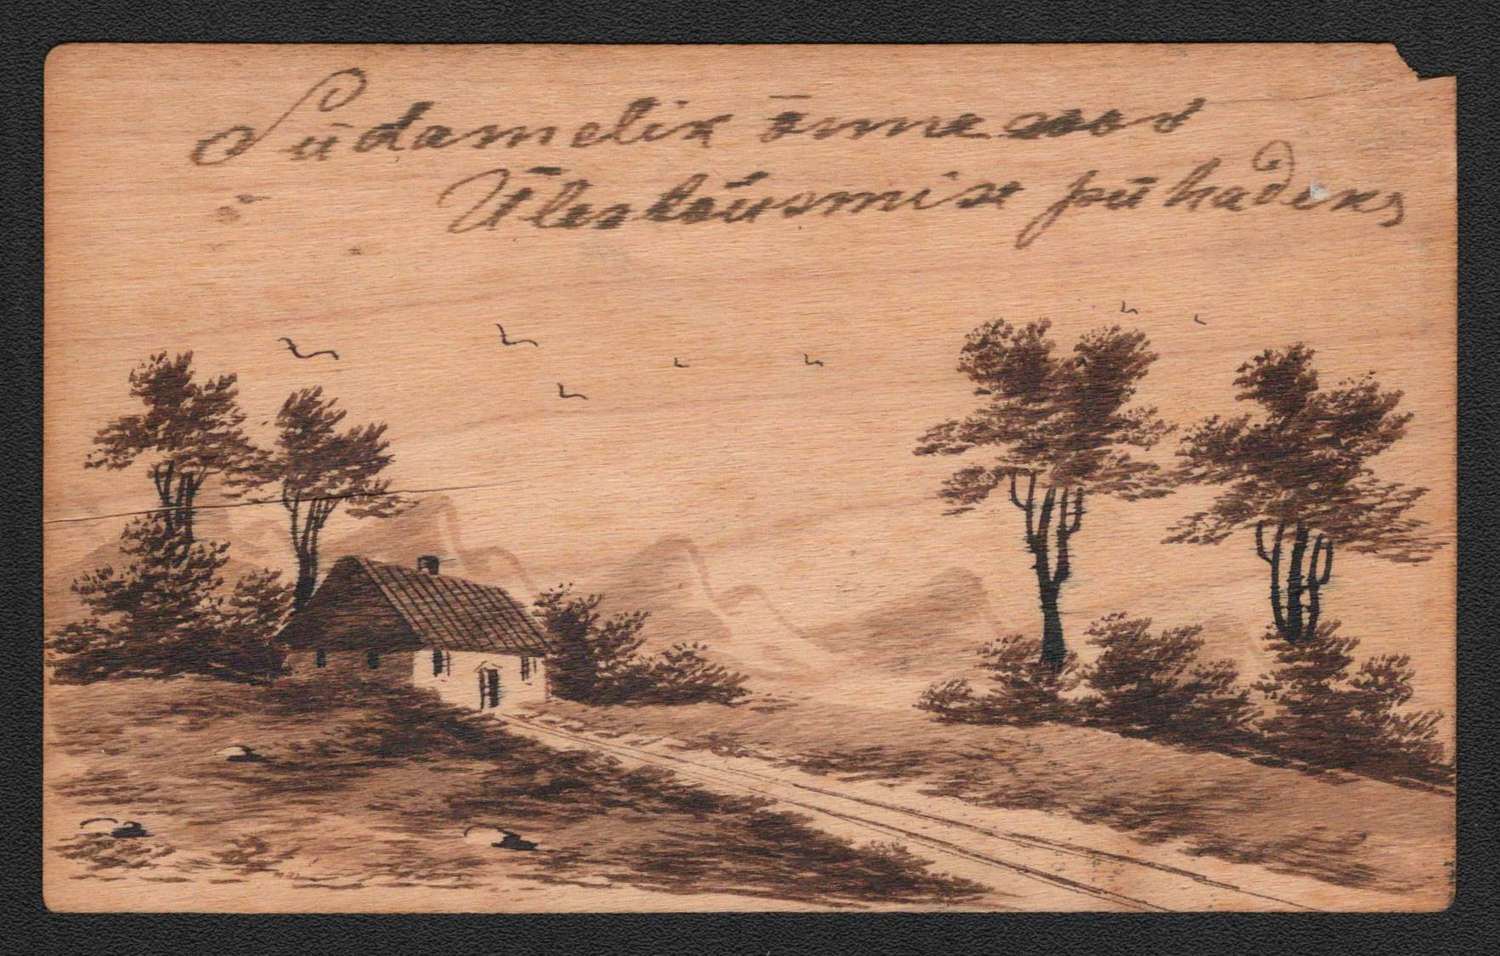 Südamelik õnne soov
Ülestõusmise pühadeks